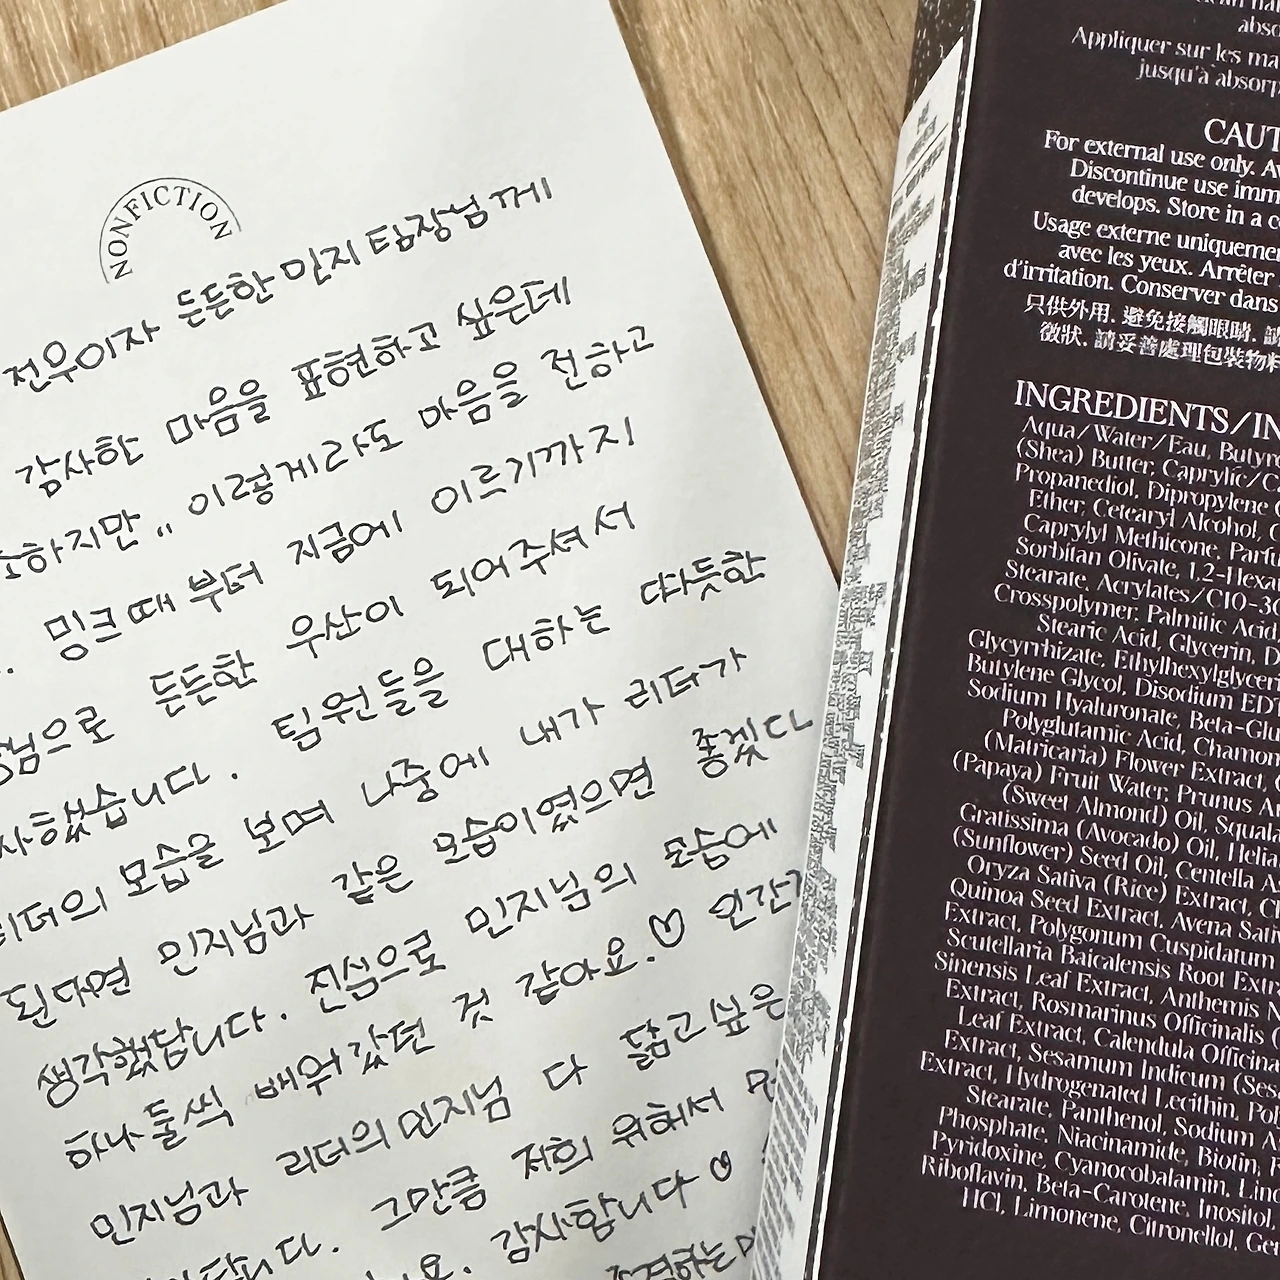 NONFICTION
전우이자 든든한 민지 팀장님께
감사한 마음을 표현하고 싶은데
소하지만,, 이렇게라도 마음을 전하고
밍크때부터 지금에 이르기까지
님으로 든든한 우산이 되어주셔서
사했습니다. 팀원들을 대하는 따듯한
리더의 모습을 보며 나중에 내가 리더가
된다면 민지님과 같은 모습이었으면 좋겠다
생각했답니다. 진심으로 민지님의 모습에
하나 둘씩 배워갔던 것 같아요.♡ 인간
민지님과 리더의 민지님 다 닮고싶은
답니다. 그만큼 저희 위해서
요. 감사합니다 ♡
abso
Appliquer sur les ma
jusqu'à absorp
CAUT
For external use only. Av
Discontinue use imm
develops. Store in a c
Usage externe uniqueme
avec les yeux. Arrêter
d'irritation. Conserver dans
只供外用. 避免接觸眼睛.
徵狀. 請妥善處理包裝物料
INGREDIENTS/IN
Aqua/Water/Eau, Butyro
(Shea) Butter, Caprylic/C
Propanediol, Dipropylene
Ether, Cetearyl Alcohol, C
Caprylyl Methicone, Parfu
Sorbitan Olivate, 1,2-Hexa
Stearate, Acrylates/C10-30
Crosspolymer, Palmitic Acid
Stearic Acid, Glycerin, D
Glycyrrhizate, Ethylhexylglyceri
Butylene Glycol, Disodium EDT
Sodium Hyaluronate, Beta-Glu
Polyglutamic Acid, Chamom
(Matricaria) Flower Extract,
(Papaya) Fruit Water, Prunus A
(Sweet Almond) Oil, Squala
Gratissima (Avocado) Oil, Helia
(Sunflower) Seed Oil, Centella A
Oryza Sativa (Rice) Extract, C
Quinoa Seed Extract, Avena Sati
Extract, Polygonum Cuspidatum
Scutellaria Baicalensis Root Extr
Sinensis Leaf Extract, Anthemis N
Extract, Rosmarinus Officinalis
Leaf Extract, Calendula Officina
Extract, Sesamum Indicum (Ses
Extract, Hydrogenated Lecithin, Pol
Stearate, Panthenol, Sodium A
Phosphate, Niacinamide, Biotin, F
Pyridoxine, Cyanocobalamin, Lino
Riboflavin, Beta-Carotene, Inositol,
HCl, Limonene, Citronellol, Ger